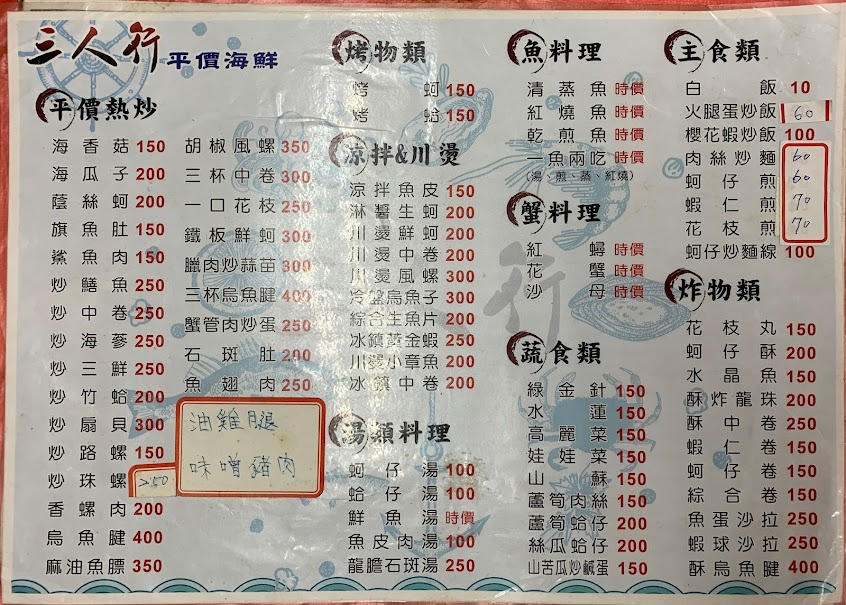 三人行 平價海鮮
平價熱炒
海香菇 150
海瓜子 200
蔭絲蚵 200
旗魚肚 150
鯊魚肉 150
炒鱔魚 250
炒中卷 250
炒海蔘 250
炒三鮮 250
炒竹蛤 200
炒扇貝 300
炒路螺 150
炒珠螺 250
香螺肉 200
烏魚腱 400
麻油魚膘 350
胡椒風螺 350
三杯中卷 300
一口花枝 250
鐵板鮮蚵 300
臘肉炒蒜苗 300
三杯烏魚腱 400
蟹管肉炒蛋 250
石斑肚 200
魚翅肉 250
油雞腿
味噌豬肉
烤物類
烤蚵 150
烤蛤 150
涼拌&川燙
涼拌魚皮 150
淋醬生蚵 200
川燙鮮蚵 200
川燙中卷 200
川燙風螺 300
冷盤烏魚子 300
綜合生魚片 200
冰鎮黃金蝦 250
川燙小章魚 200
冰鎮中卷 200
湯類料理
蚵仔湯 100
蛤仔湯 100
鮮魚湯 時價
魚皮肉湯 100
龍膽石斑湯 250
魚料理
清蒸魚 時價
紅燒魚 時價
乾煎魚 時價
一魚兩吃 時價
(湯、煎、蒸、紅燒)
蟹料理
紅蟳 時價
花蟹 時價
沙母 時價
蔬食類
綠金針 150
水蓮 150
高麗菜 150
娃娃菜 150
山蘇 150
蘆筍肉絲 150
蘆筍蛤仔 200
絲瓜蛤仔 200
山苦瓜炒鹹蛋 150
主食類
白飯 10
火腿蛋炒飯 60
櫻花蝦炒飯 100
肉絲炒麵 60
蚵仔煎 60
蝦仁煎 70
花枝煎 70
蚵仔炒麵線 100
炸物類
花枝丸 150
蚵仔酥 200
水晶魚 150
酥炸龍珠 200
酥中卷 250
蝦仁卷 150
蚵仔卷 150
綜合卷 150
魚蛋沙拉 250
蝦球沙拉 250
酥烏魚腱 400